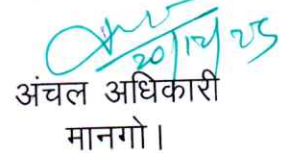 20/12/25
अंचल अधिकारी
मानगो।